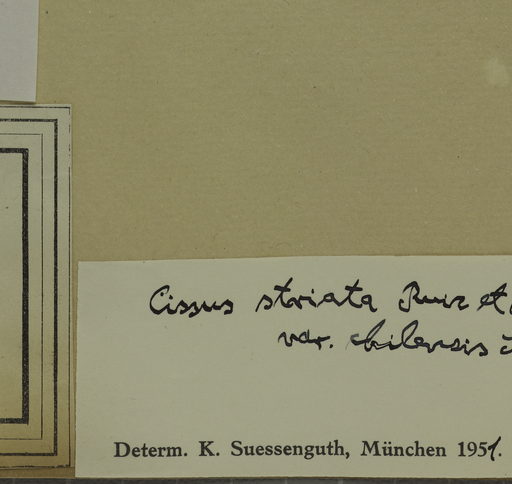 Cissus striata Ruiz et
var. chilensis
Determ. K. Suessenguth, München 1951.